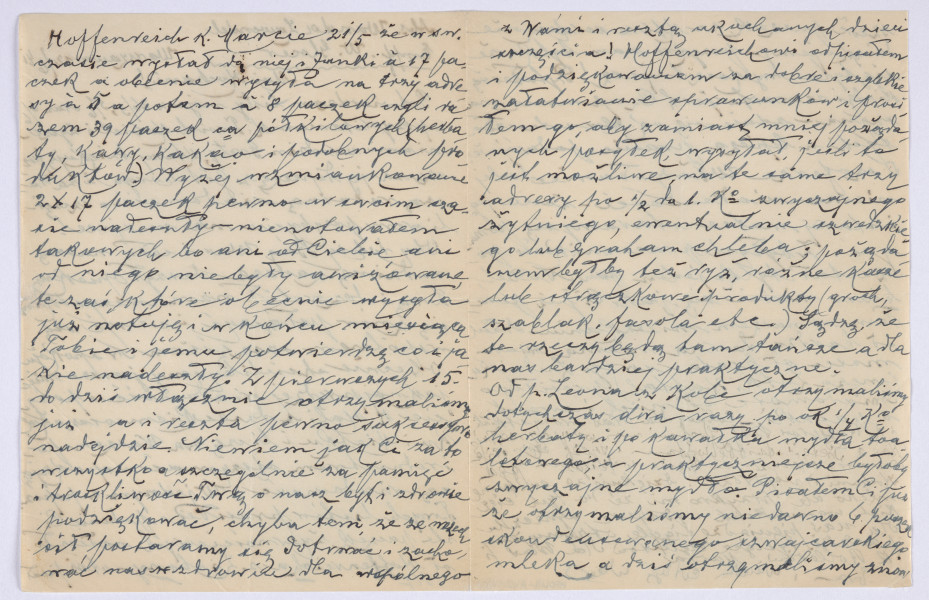 Hoffenreich k. Marcie 21/5 że w sw.
czasie wysłał dla niej i Janki à 17 pa-
czek a obecnie wysyła na trzy adre
sy à 5 a potem à 8 paczek czyli ra
zem 39 paczek ca półkilowych (herba
ty, kawy, kakao i podobnych pro
duktów.) Wyżej wzmiankowane
2 x 17 paczek pewno w swoim cza-
sie nadeszły – nie notowałem
takowych bo ani od Ciebie ani
od niego nie były awizowane
te zaś które obecnie wysyła
już notuję i w końcu miesiąca
Tobie i jemu potwierdzę co i ja
kie nadeszły. Z pierwszych 15-
do dziś włącznie otrzymaliśmy
już a i reszta pewno sukcesywnie
nadejdzie. Nie wiem jak Ci za to
wszystko a szczególnie za pamięć
i troskliwość Twą o nasz byt i zdrowie
podziękować, chyba tem, że ze wszech
sił postaramy się dotrwać i zacho-
wać nas w zdrowiu dla wspólnego
z Wami i resztą ukochanych dzieci
szczęścia! Hoffenreichowi odpisałem
i podziękowałem za dobre i szybkie
załatwianie sprawunków i prosi
łem go, aby zamiast mniej pożąda
nych posyłek wysyłał jeśli to
jest możliwe, na te same trzy
adresy po 1/2 do 1. Ko zwyczajnego
żytniego, ewentualnie szwedzkie
go lub graham chleba; pożąda
nem byłby też ryż, różne kasze
lub strączkowe produkty (groch,
szablak, fasola etc.) Sądzę, że
te rzeczy będą tam tańsze a dla
nas bardziej praktyczne.
Od p. Leona z Kobe otrzymaliśmy
dotychczas dwa razy po ok 1/4 Ko
herbaty i po kawałku mydła toa
letowego, a praktyczniejsze byłoby
zwyczajne mydło. Pisałem Ci już
że otrzymaliśmy niedawno 4 puszek
skondensowanego szwajcarskiego
mleka a dziś otrzymaliśmy znow